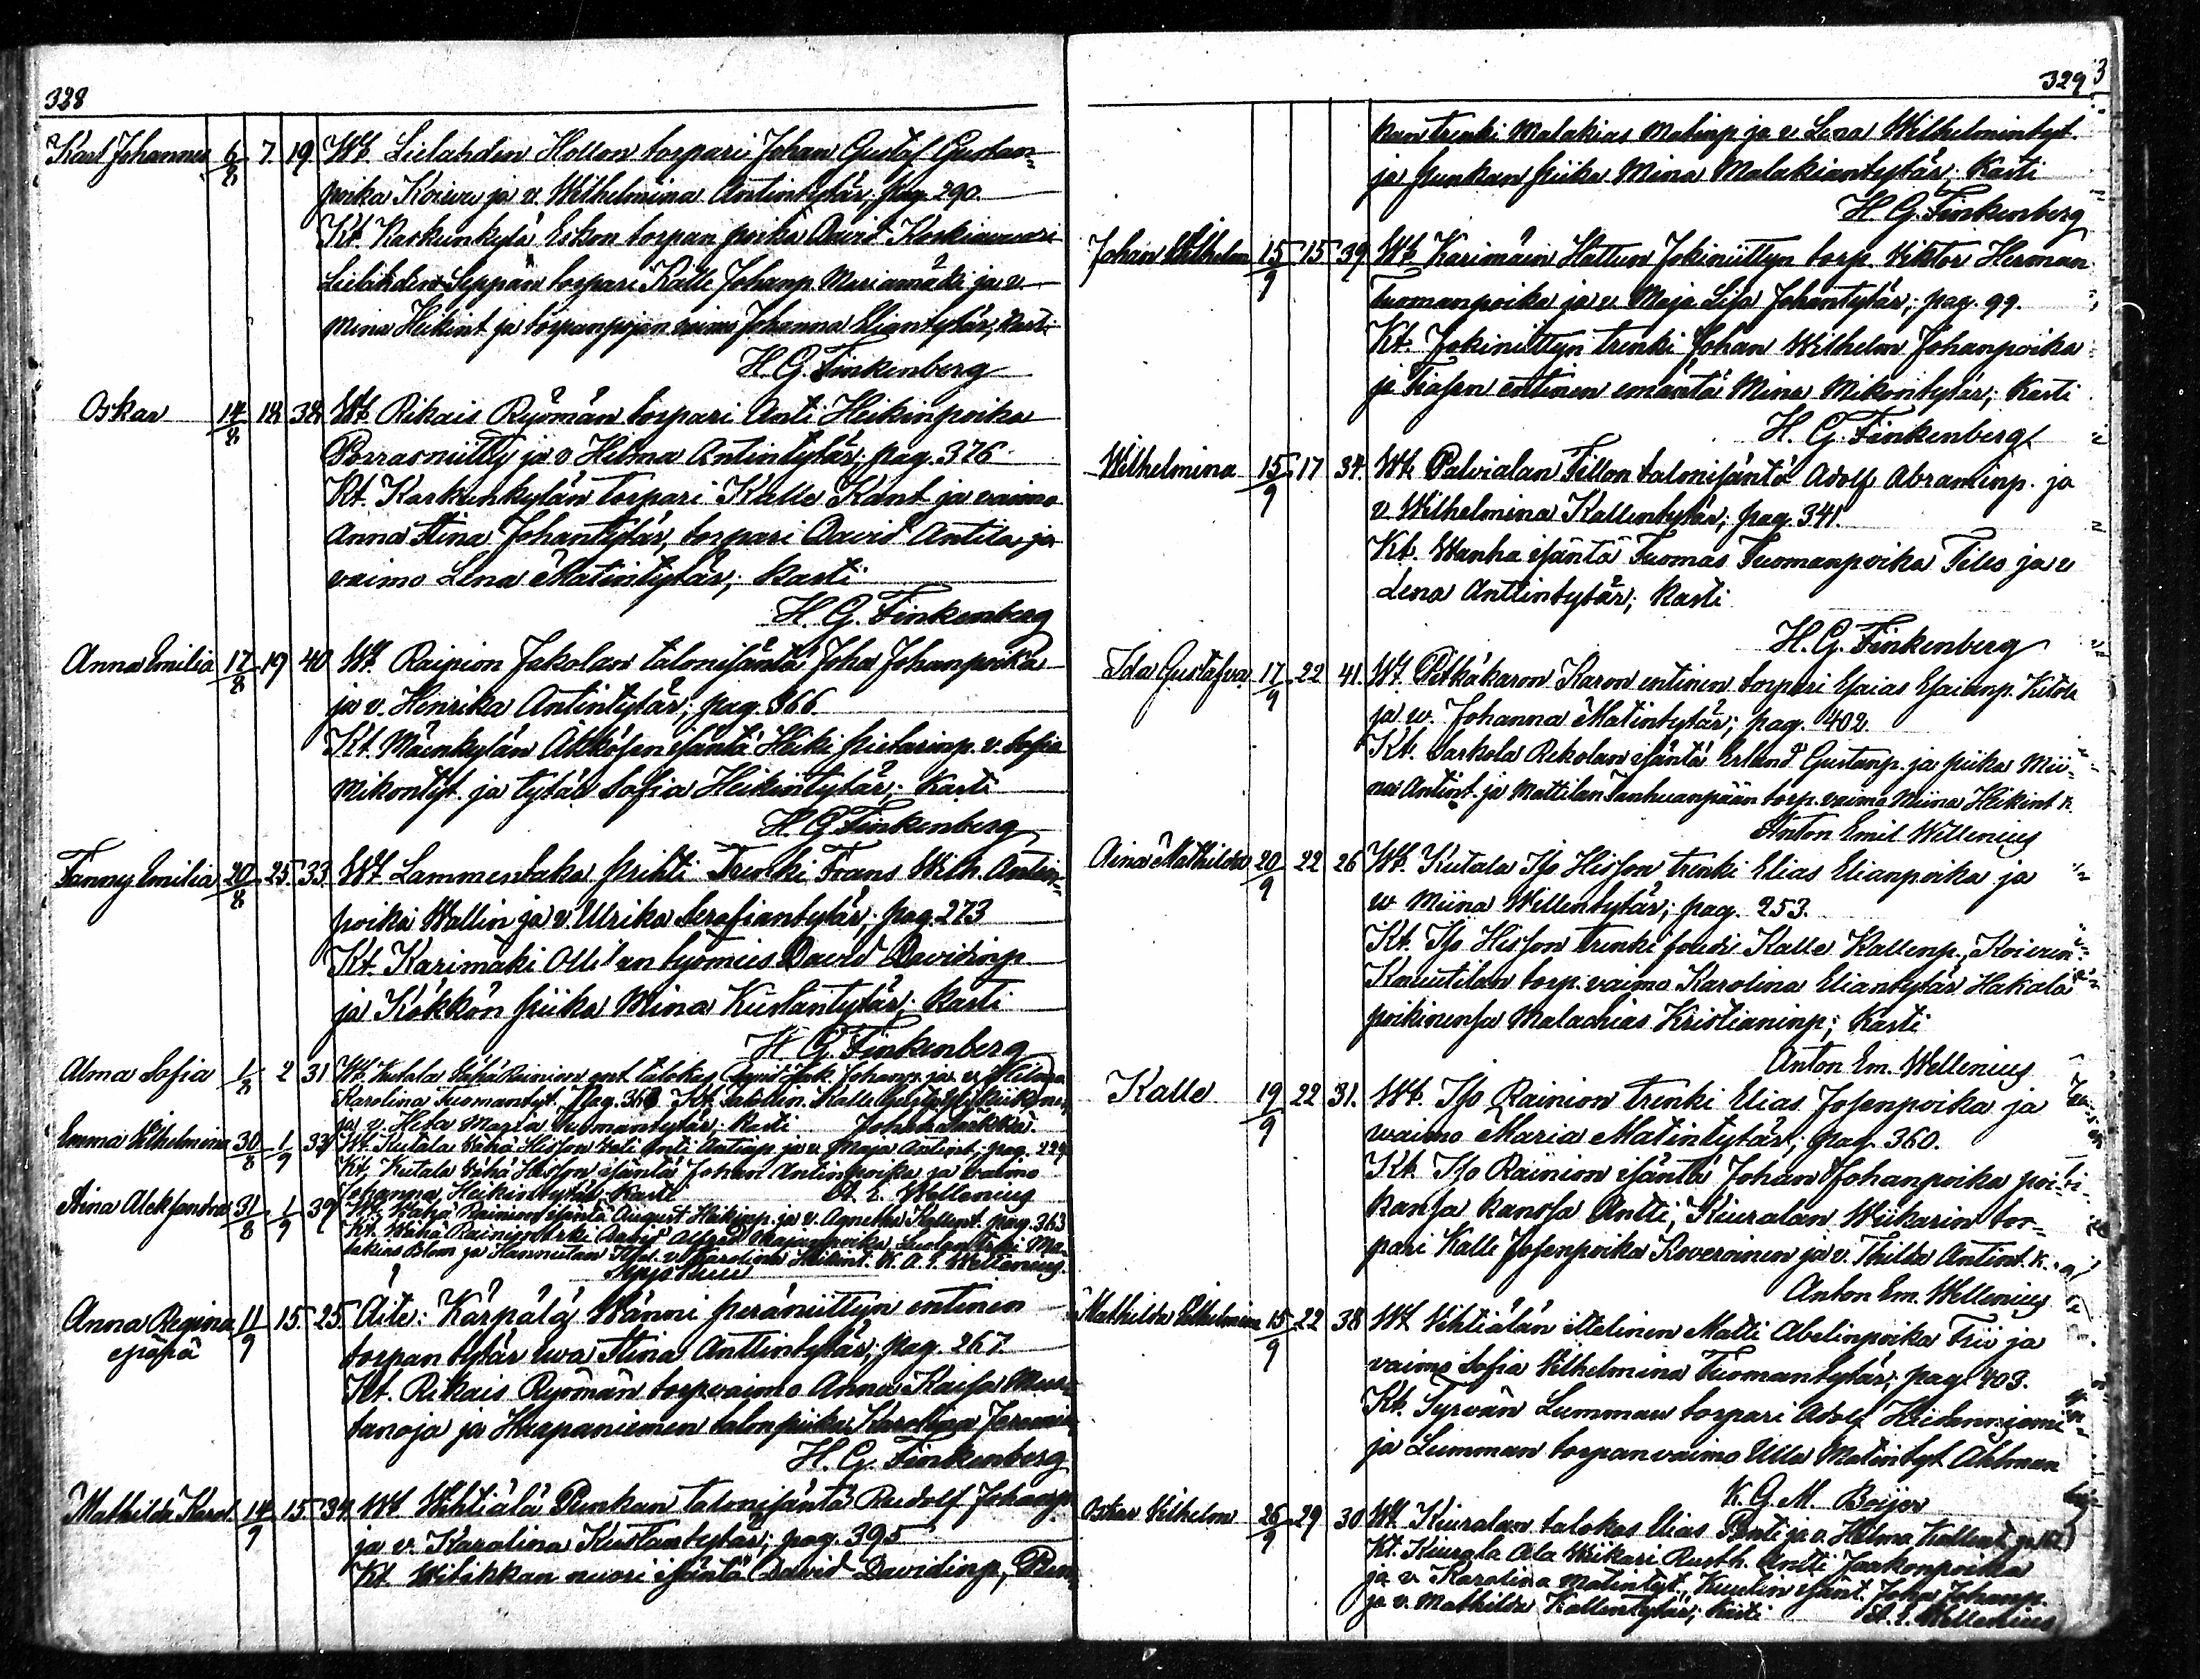 328
Karl Johannes 6/8 7 19 Wt. Lielahden Hollon torpari Johan Gustaf Gustan-
poika Koivu ja v. Wilhelmina Antintytär, pag. 290.
Kt. Karkunkylä Eskon torpan poika David
Lielahden Seppän torpari Kalle Johanp. ja v.
Mina Heikint. ja torpanpojan vaimo Johanna Eliantytär, Kasti
H. G. Finkenberg
Oskar 14/8 18 38 Wt. Rikais Ryömän torpari Anti Heikinpoika
Porrasniitty ja v. Helma Antintytär, pag. 376
Kt. Karkunkylän torpari Kalle Kant ja vaimo
Anna Stina Johantytär, torpari David Antila ja
vaimo Lena Matintytär; Kasti
H. G. Finkenberg
Anna Emilia 17/8 19 40 Wt. Rainion Jakolan talonisäntä Joha Johanpoika
ja v. Henrika Antintytär; pag. 366.
Kt. Mäenkylän isäntä Heiki v. Sofia
Mikontyt. ja tytär Sofia Heikintytär; Kasti
H. G. Finkenberg
Fanny Emilia 20/8 25 33 Wt. Lammentaka Prihti Trenki Frans Wilh. Antin-
poika Wallin ja v. Ulrika Serafiantytär; pag. 273
Kt. Karimäki Ollilan työmies David Davidinp.
ja Kökkön piika Mina Kustantytär; Kasti
H. G. Finkenberg
Alma Sofia 1/8 2 31 Wt. Kutala Vähä Rainion ent. talokas Johanp. ja v.
Karolina Tuomantyt. Pag. 36 Kt. Kalle
ja v. Heta Maria Tuomantytär; Kasti Johan
Emma Vilhelmina 30/8 1/9 33 Wt. Kutala Vähä Hisson Anti Antinp. ja v. Maja Antint.; pag. 229
Kt. Kutala Vähä Hisson isäntä Johan Antinpoika ja vaimo
Johanna Heikintytär; Kasti A. E. Wellenius
Aina Aleksandra 31/8 1/9 39 Wt. Vähä Rainion isäntä August Heikinp. ja v. Agnetha Kallent. pag. 363
Kt. Vähä Rainion
Blom ja v. Karolina Heikint. K. A. E. Wellenius
Syyskuu
Anna Regina 11/9 15 25 Äite: Kärpälä Wänni peräniittyn entinen
epäpä torpan tytär Eva Stina Anttintytär; pag. 267
Kt. Rikais Ryömän torp. vaimo Anna Kaisa Mus-
tanoja ja Haapaniemen talon piika Karolina
H. G. Finkenberg
Mathilda Karol. 14/9 15 34 Wt. Vehtiälä Punkan talonisäntä Rudolf Johanp.
ja v. Karolina Kustantytär; pag. 395
Kt. Wilikkan nuori isäntä David Davidinp., Pun-
329
kan trenki Malakias Matinp. ja v. Lena Wilhelmintyt.
ja Punkan piika Mina Malakiantytär; Kasti
H. G. Finkenberg
Johan Wilhelm 15/9 15 39 Wt. Karimäin Hattun Jokiniittyn torp. Viktor Herman
Tuomanpoika ja v. Maja Lisa Johantytär; pag. 99.
Kt. Jokiniittyn trenki Johan Wilhelm Johanpoika
ja entinen emäntä Mina Mikontytär; Kasti
H. G. Finkenberg
Wilhelmina 15/9 17 34. Wt. Palvialan Tillon talonisäntä Adolf Abraminp. ja
v. Wilhelmina Kallentytär; pag. 341.
Kt. Wanha isäntä Tuomas Tuomanpoika Tillo ja v
Lena Anttintytär; Kasti
H. G. Finkenberg
Ida Gustafva 17/9 22 41. Wt. Pitkäkaron Karon entinen torpari Esaias Esaianp.
ja w. Johanna Matintytär; pag. 402.
Kt. Sarkola Rekolan isäntä Erland Gustanp. ja piika Mii-
na Antint. ja Mattilan Tanhuanpään torp. vaimo Miina Heikint. K.
Anton Emil Wellenius
Aina Mathilda 20/9 22 26 Wt. Kutala Iso Hisson trenki Elias Elianpoika ja
w. Miina Willentytär; pag. 253.
Kt. Iso Hisson trenki Kalle Kallenp.,
torp. vaimo Karolina Eliantytär Hakala
Malachias Kristianinp; Kasti
Anton Em. Wellenius
Kalle 19/9 22 31. Wt. Iso Rainion trenki Elias Josenpoika ja
waimo Maria Matintytär; pag. 360.
Kt. Iso Rainion isäntä Johan Johanpoika poi-
kansa kanssa Antti, Kiuralan Wiikarin tor-
pari Kalle Josenpoika Koveroinen ja v. Thilda Antint. K.
Anton Em. Wellenius
Mathilda Vilhelmina 15/9 22 38 Wt. Vehtiälän itellinen Matti Abelinpoika ja
vaimo Sofia Vilhelmina Tuomantytär; pag. 403.
Kt. Tyrvän Lumman torpari Adolf
ja Lumman torpan vaimo Ulla Matintyt. Ahlman
K. G. M. Boijer
Oskar Vilhelm 26/9 29 30 Wt. Kiuralan talokas Elias Pertti ja v. Helma Kallent.
Kt. Kiurala Ala Wiikari Rusth. Antti Jaakonpoika
ja v. Karolina Matintyt., isänt. Joha Johanp.
ja v. Mathilda Kallentytär; Kasti A. E. Wellenius